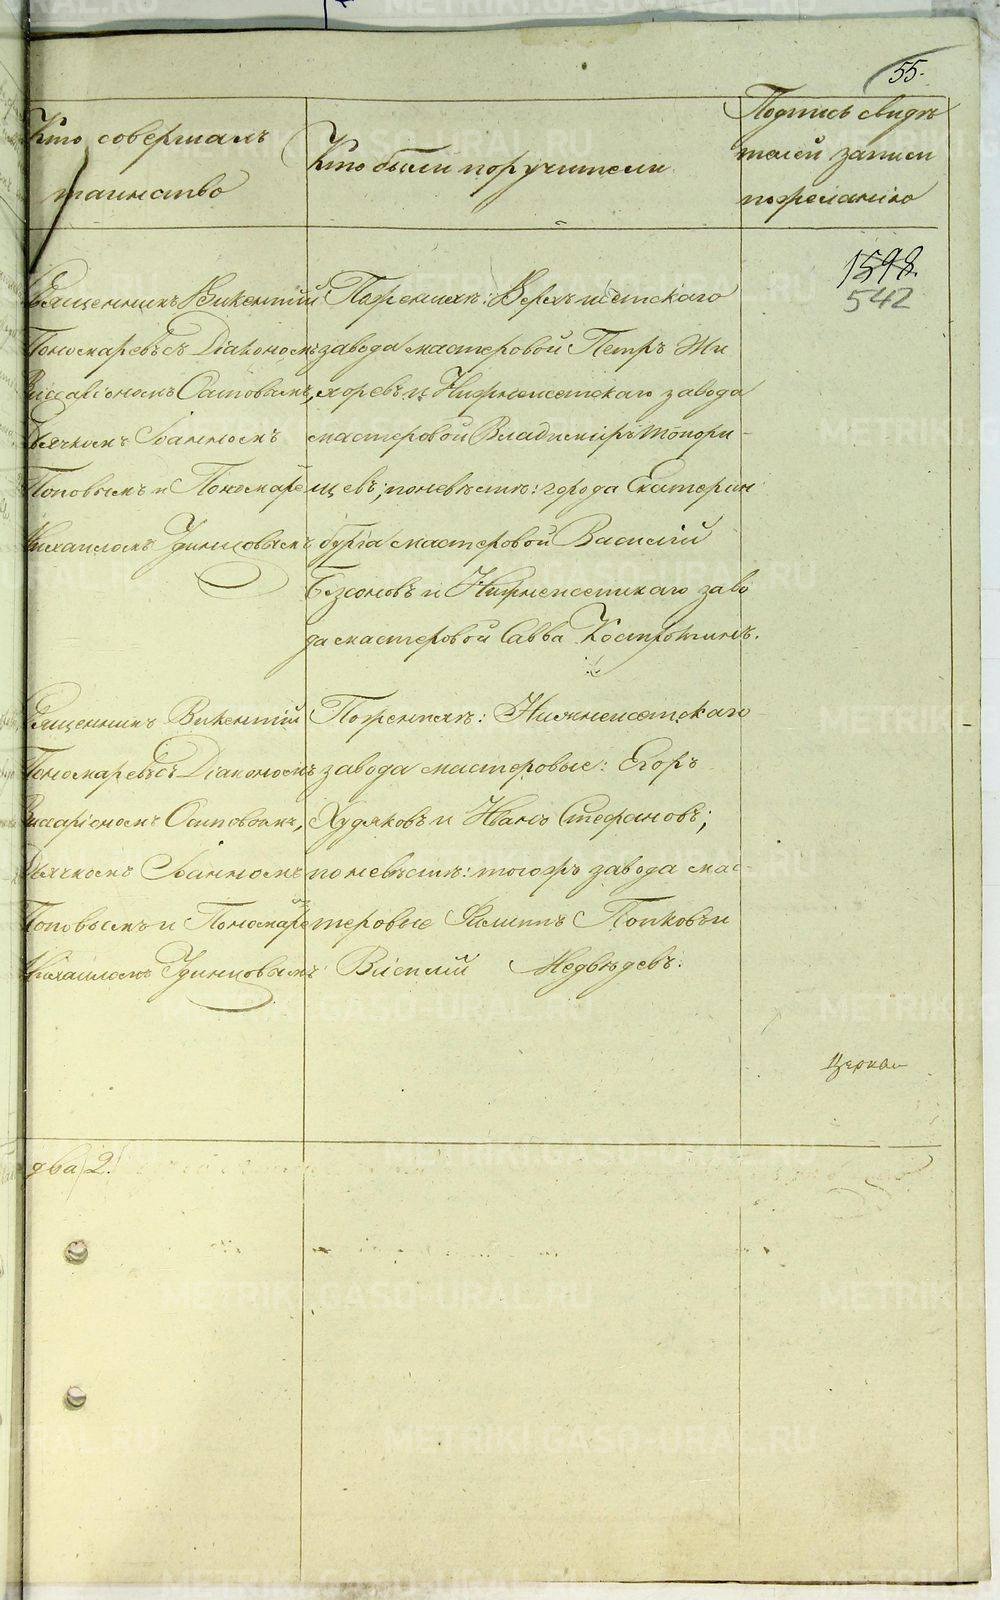 55.
Кто совершалъ
таинство
Кто были поручители
Подпись свидѣ
телей записи
по желанію
1598.
542
Священникъ Викентій
Пономаревъ съ Діакономъ
Виссаріономъ
Дьячкомъ Іоанномъ
Поповымъ и Пономаре
Михаиломъ Удинцовымъ
По женихѣ: Верхъ исетскаго
завода мастеровой Петръ
и Нижнеисетскаго завода
мастеровой Владиміръ Топори-
щевъ; по невѣстѣ: города Екатерин
бурга мастеровой Василій
и Нижнеисетскаго заво
да мастеровой Савва Костроминъ.
Священникъ Викентій
Пономаревъ съ Діакономъ
Виссаріономъ
Дьячкомъ Іоанномъ
Поповымъ и Пономаре
Михаиломъ Удинцовымъ
По женихѣ: Нижнеисетскаго
завода мастеровые: Егоръ
Худяковъ и Иванъ Стефановъ;
по невѣстѣ: тогожъ завода мас
теровые Филиппъ Попковъ и
Василій Медвѣдевъ.
Церкви
два 2.
METRIKI.GASO-URAL.RU